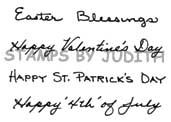 Easter Blessings
Happy Valentine's Day
STAMPS BY JUDITH
HAPPY ST. PATRICK'S DAY
Happy "4th" of July